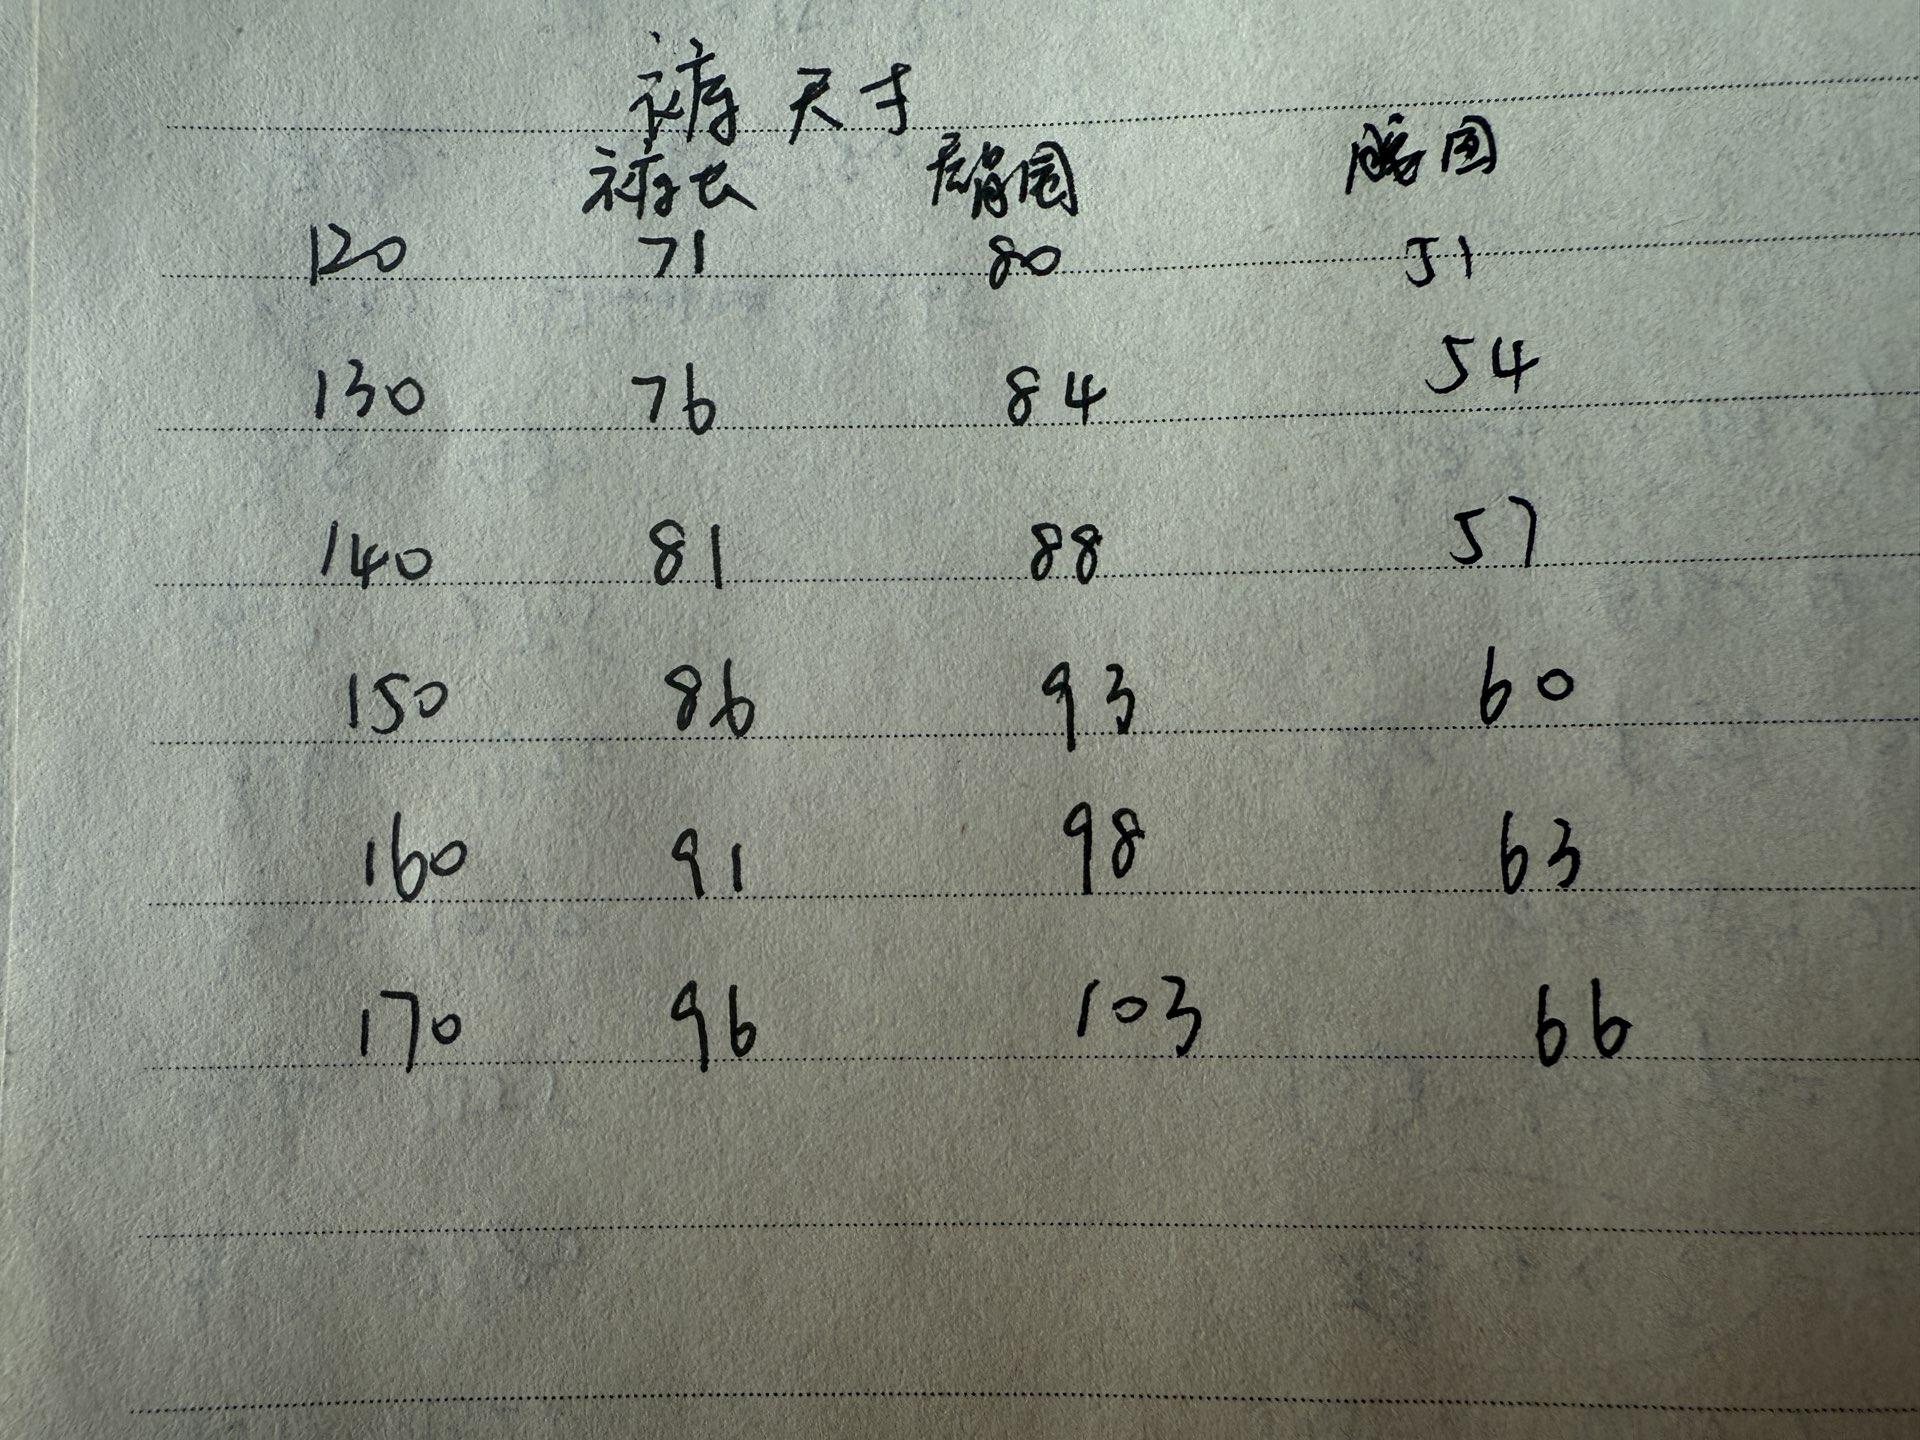 裤 尺寸
裤长 臀围 腰围
120 71 80 51
130 76 84 54
140 81 88 57
150 86 93 60
160 91 98 63
170 96 103 66